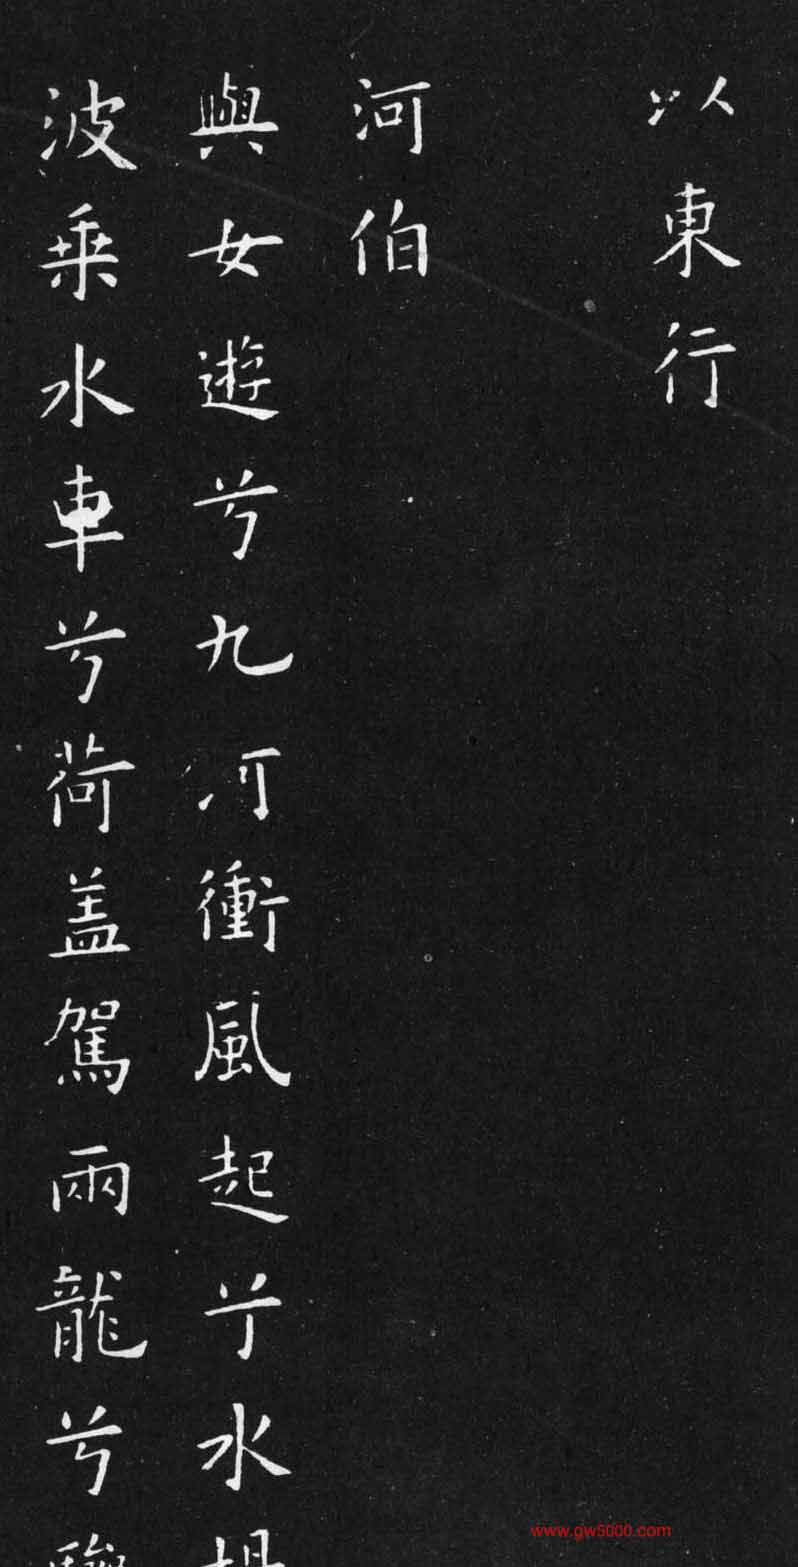 以東行
河伯
與女遊兮九河衝風起兮水
波乗水車兮荷盖駕兩龍兮
www.gw5000.com